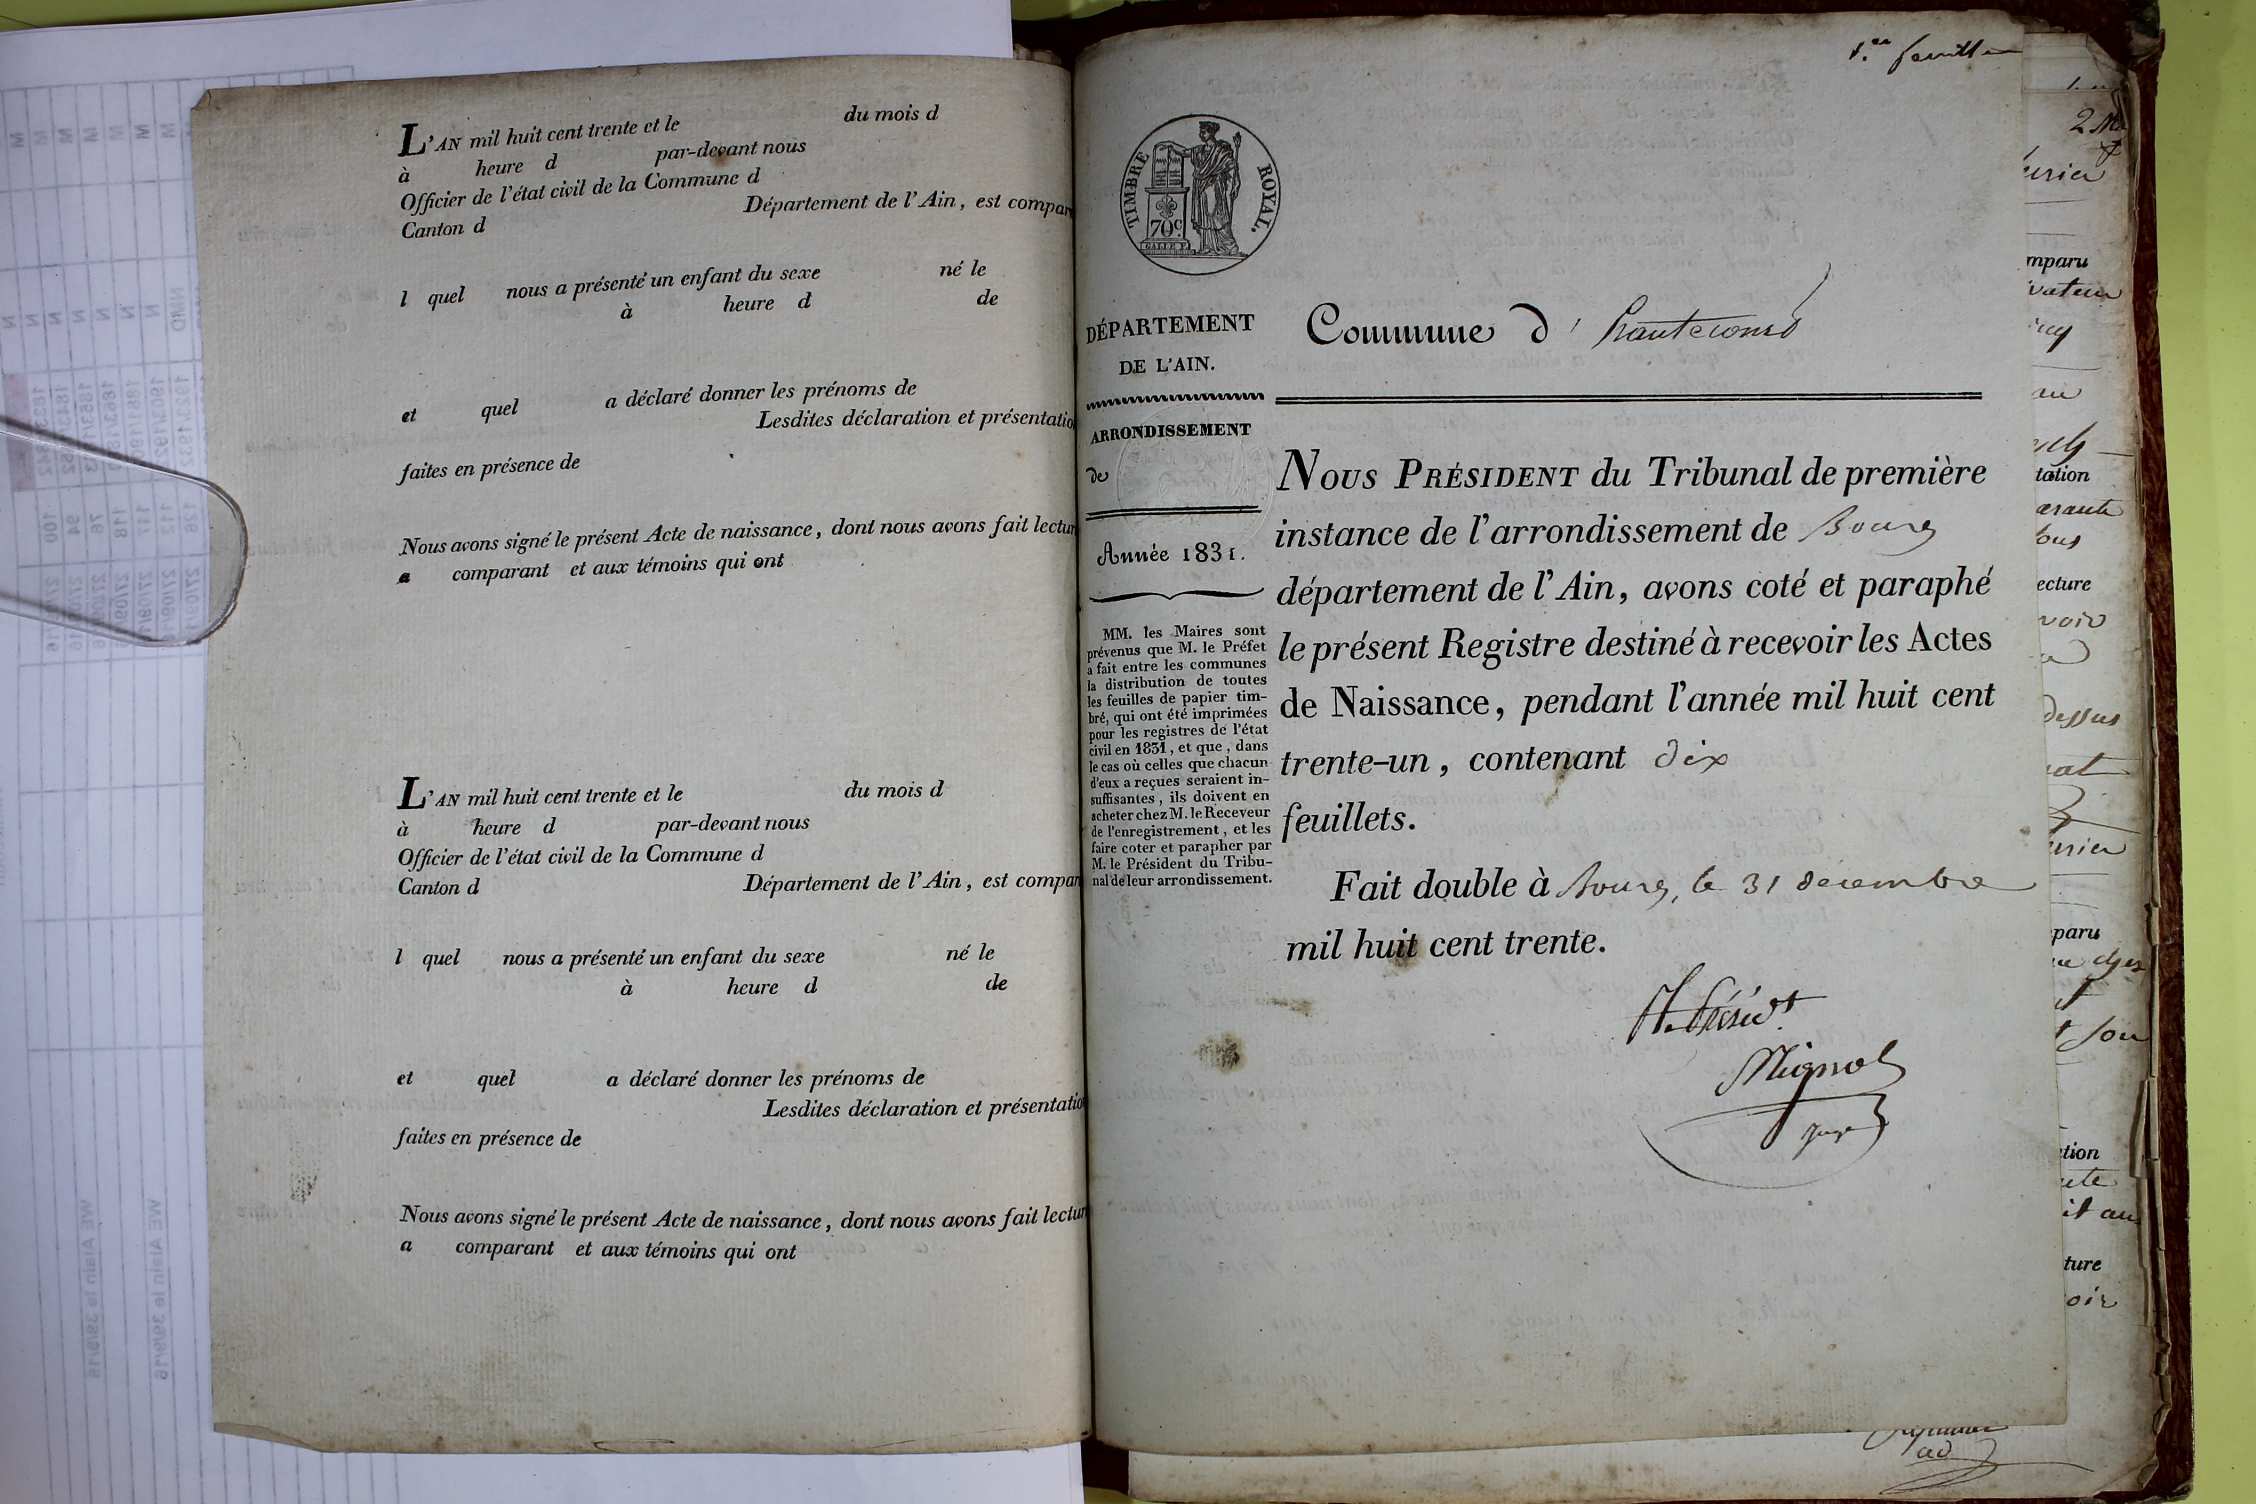 L'AN mil huit cent trente et le du mois d
à heure d par-devant nous
Officier de l'état civil de la Commune d
Canton d Département de l'Ain, est compar
l quel nous a présenté un enfant du sexe né le
à heure d de
et quel a déclaré donner les prénoms de
Lesdites déclaration et présentatio
faites en présence de
Nous avons signé le présent Acte de naissance, dont nous avons fait lectur
a comparant et aux témoins qui ont
L'AN mil huit cent trente et le du mois d
à heure d par-devant nous
Officier de l'état civil de la Commune d
Canton d Département de l'Ain, est compar
l quel nous a présenté un enfant du sexe né le
à heure d de
et quel a déclaré donner les prénoms de
Lesdites déclaration et présentatio
faites en présence de
Nous avons signé le présent Acte de naissance, dont nous avons fait lectur
a comparant et aux témoins qui ont
1.er feuillet
TIMBRE ROYAL.
70c.
DÉPARTEMENT
DE L'AIN.
ARRONDISSEMENT
de
Année 1831.
MM. les Maires sont
prévenus que M. le Préfet
a fait entre les communes
la distribution de toutes
les feuilles de papier tim-
bré, qui ont été imprimées
pour les registres de l'état
civil en 1831, et que, dans
le cas où celles que chacun
d'eux a reçues seraient in-
suffisantes, ils doivent en
acheter chez M. le Receveur
de l'enregistrement, et les
faire coter et parapher par
M. le Président du Tribu-
nal de leur arrondissement.
Commune d' hautecourt
NOUS PRÉSIDENT du Tribunal de première
instance de l'arrondissement de Bourg
département de l'Ain, avons coté et paraphé
le présent Registre destiné à recevoir les Actes
de Naissance, pendant l'année mil huit cent
trente-un, contenant dix
feuillets.
Fait double à Bourg, le 31 décembre
mil huit cent trente.
Mignot
juge
mparu
vateur
tation
ecture
dessus
paru
tion
ture